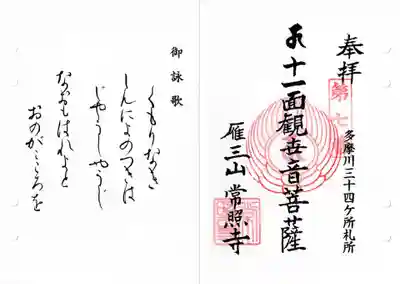 奉拝
第七
多摩川三十四ケ所札所
十一面觀世音菩薩
雁三山 常照寺
御詠歌
くもりなき
しんによのつきは
じやうしやうじ
なおもはれよと
おのがこころを